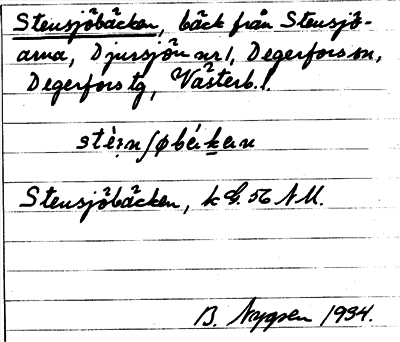 Stensjöbäcken, bäck från Stensjö-
arna, Djursjön nr 1, Degerfors sn,
Degerfors tg, Västerb. l.
Stensjöbäcken, k G. 56 NU.
B. Nygren 1934.